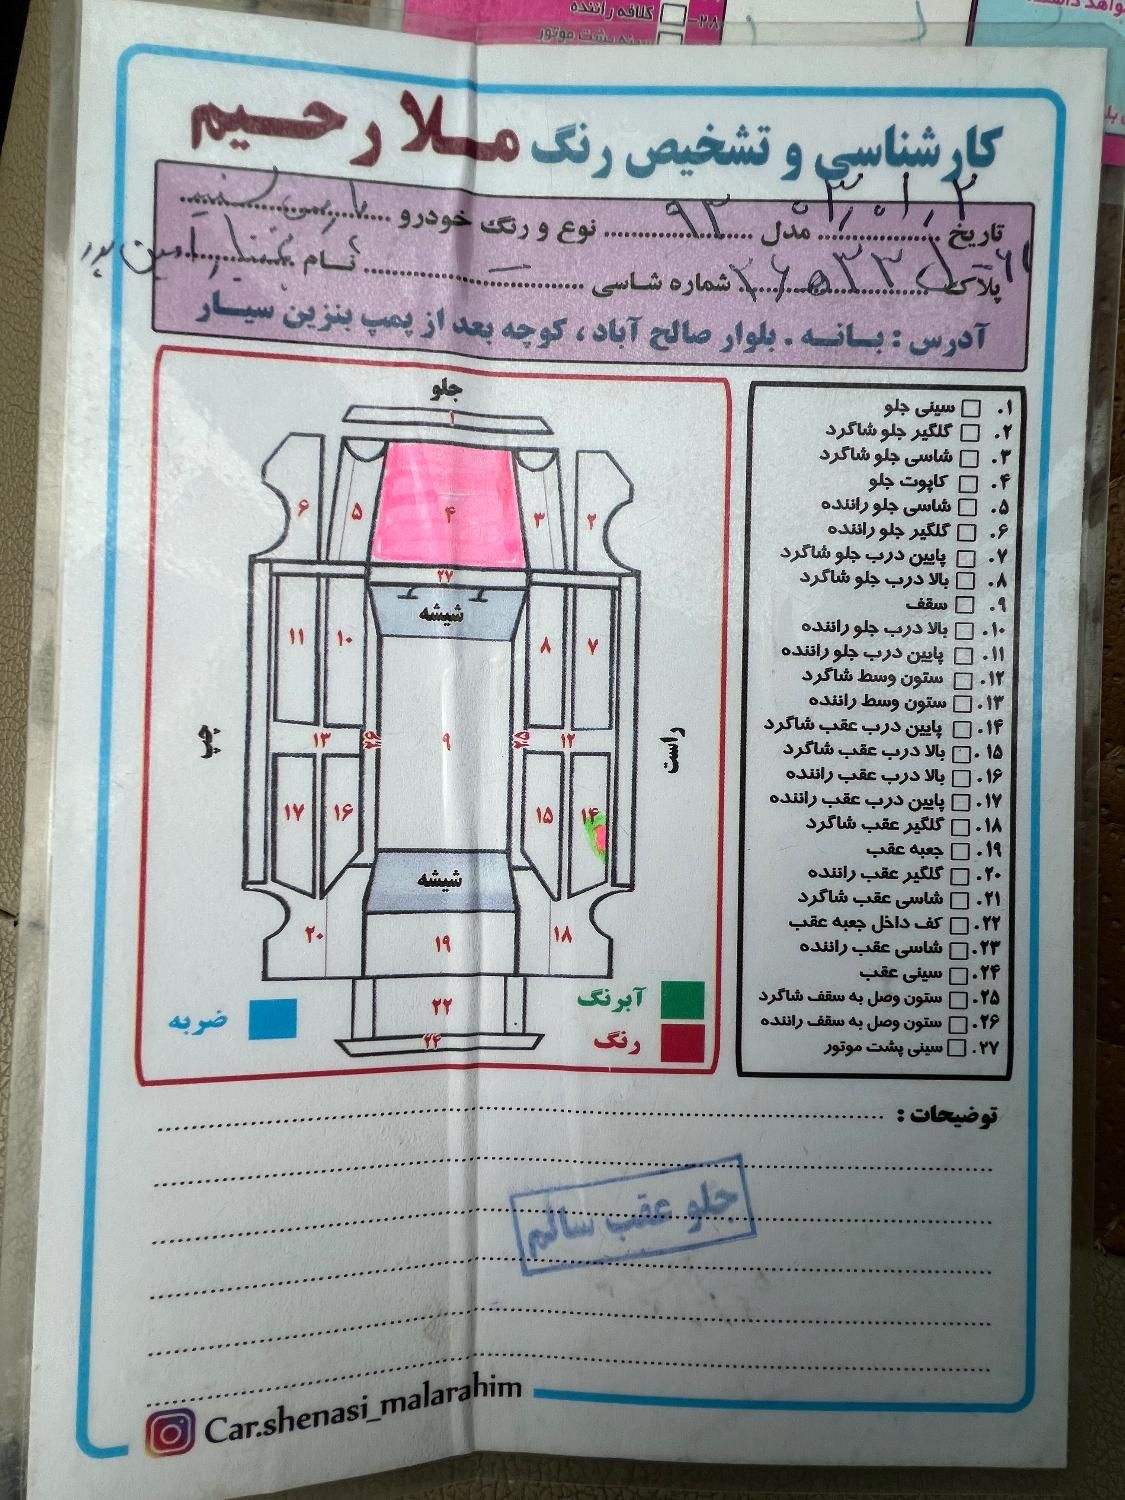 ۲۸- کلافه راننده
سینی پشت موتور
کارشناسی و تشخیص رنگ ملا رحیم
تاریخ مدل ۹۳ نوع و رنگ خودرو
پلاک شماره شاسی نام
آدرس : بانه . بلوار صالح آباد ، کوچه بعد از پمپ بنزین سیار
جلو
۱
۶ ۵ ۴ ۳ ۲
۲۷
شیشه
۱۱ ۱۰ ۸ ۷
چپ ۱۳ ۲۶ ۹ ۲۵ ۱۲ راست
۱۷ ۱۶ ۱۵ ۱۴
شیشه
۲۰ ۱۹ ۱۸
۲۲
۲۴
آبرنگ
رنگ
ضربه
۱. سینی جلو
۲. گلگیر جلو شاگرد
۳. شاسی جلو شاگرد
۴. کاپوت جلو
۵. شاسی جلو راننده
۶. گلگیر جلو راننده
۷. پایین درب جلو شاگرد
۸. بالا درب جلو شاگرد
۹. سقف
۱۰. بالا درب جلو راننده
۱۱. پایین درب جلو راننده
۱۲. ستون وسط شاگرد
۱۳. ستون وسط راننده
۱۴. پایین درب عقب شاگرد
۱۵. بالا درب عقب شاگرد
۱۶. بالا درب عقب راننده
۱۷. پایین درب عقب راننده
۱۸. گلگیر عقب شاگرد
۱۹. جعبه عقب
۲۰. گلگیر عقب راننده
۲۱. شاسی عقب شاگرد
۲۲. کف داخل جعبه عقب
۲۳. شاسی عقب راننده
۲۴. سینی عقب
۲۵. ستون وصل به سقف شاگرد
۲۶. ستون وصل به سقف راننده
۲۷. سینی پشت موتور
توضیحات :
جلو عقب سالم
Car.shenasi_malarahim